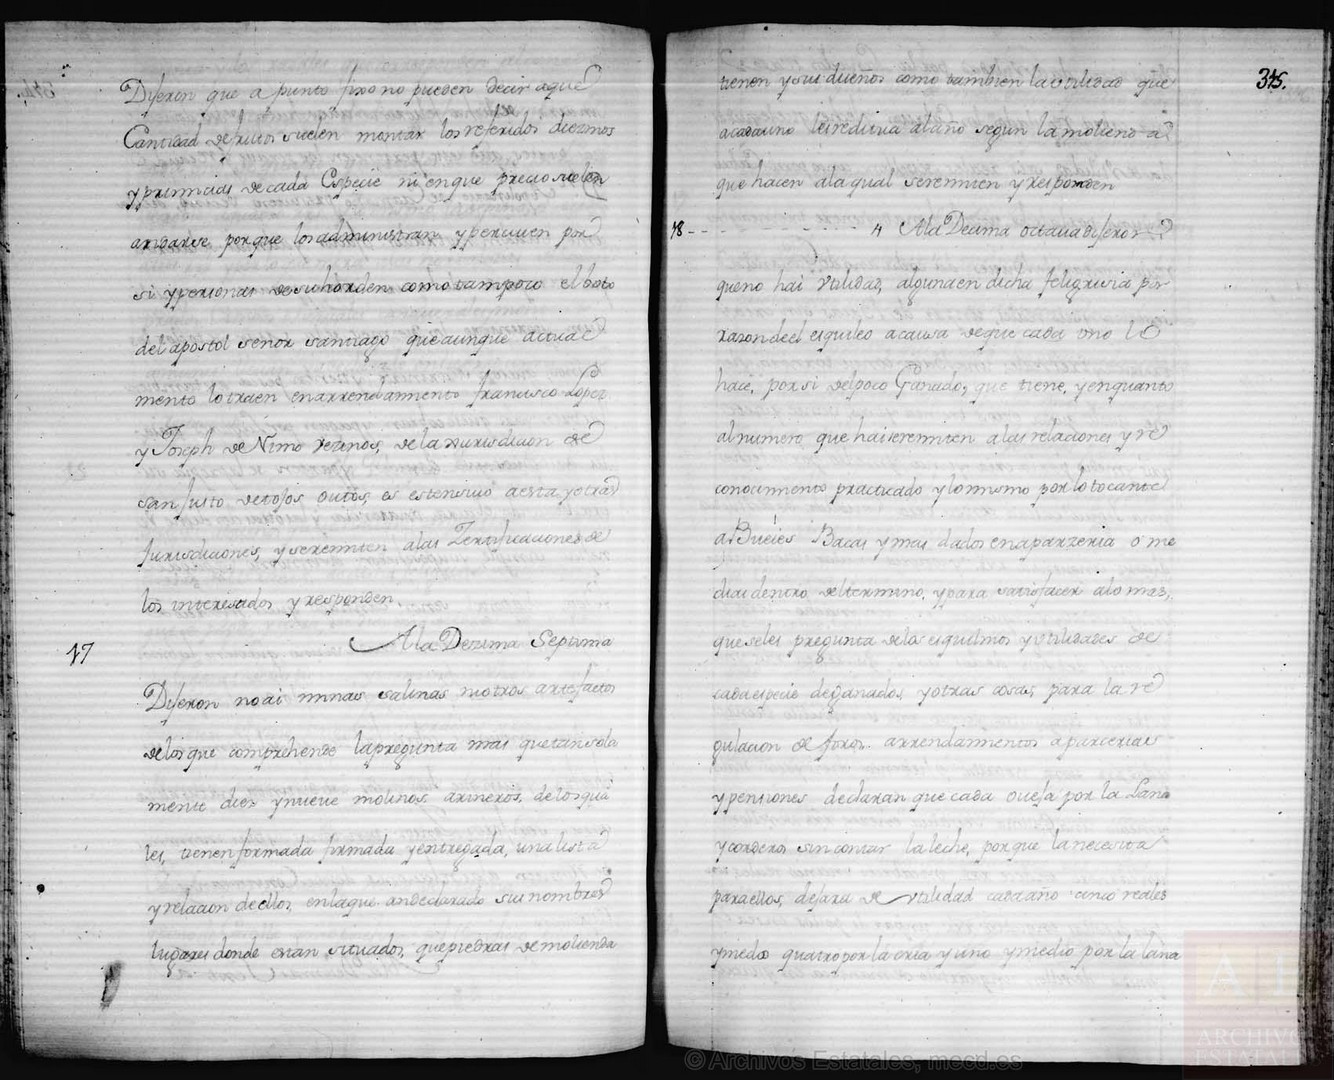 Dijeron que a punto fixo no pueden decir aque
Cantidad de frutos suelen montar los referidos diezmos
y primicias de cada Especie ni en que precio suelen
arrdarse, porque los administran y perciven por
si y personas de su horden como tampoco el boto
del apostol señor santiago que aunque actual
mento lo traen en arrendamiento francisco Lopez
y Joseph de Nimo vezinos, de la jurisdicion de
san Justo de tojos outos, es estensivo a esta y otras
Jurisdiciones, y se remiten a las Zertificaciones de
los interesados y responden
17 A la Dezima Septima
Dijeron no ai minas salinas ni otros artefactos
de los que comprehende la pregunta mas que tan sola
mente diez y nueve molinos arineros, de los qua
les, tienen formada firmada y entregada, una lista
y relacion de ellos, en la que an declarado sus nombres
lugares donde estan situados, que piedras de molienda
345.
tienen y sus dueños como tambien la utilidad que
a cada uno le reditua al año segun la moliend a
que hacen a la qual se remiten y responden
18 A la Decima octava dijeron
que no hai utilidad, alguna en dicha feligresia por
razon de el esquileo a causa de que cada uno le
hace, por si del poco Ganado, que tiene, y en quanto
al numero que hai se remiten a las relaciones y re
conocimiento practicado y lo mismo por lo tocante
a Bueies Bacas y mas dados en aparzeria o me
dias dentro del termino, y para satisfacer a lo mas,
que se les pregunta de los esquilmos y utilidades de
cada especie de ganados, y otras cosas, para la re
gulacion de foros. arrendamientos aparcerias
y pensiones declaran que cada oveja por la Lana
y corderos sin contar la leche, porque la necesita
para ellos, dejara de utilidad cada año cinco reales
y medio quatro por la cria y uno y medio por la lana
ARCHIVOS
ESTATALES
© Archivos Estatales, mecd.es